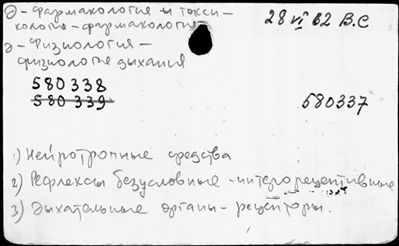 Э - фармакология и токси-
кология - фармакология
28 VI 62 В.С
Э - Физиология -
физиология дыхания
580338
580339
580337
1) Нейротропные средства
2) Рефлексы безусловные - интерорецептивные
3) Дыхательные органы - рецепторы.